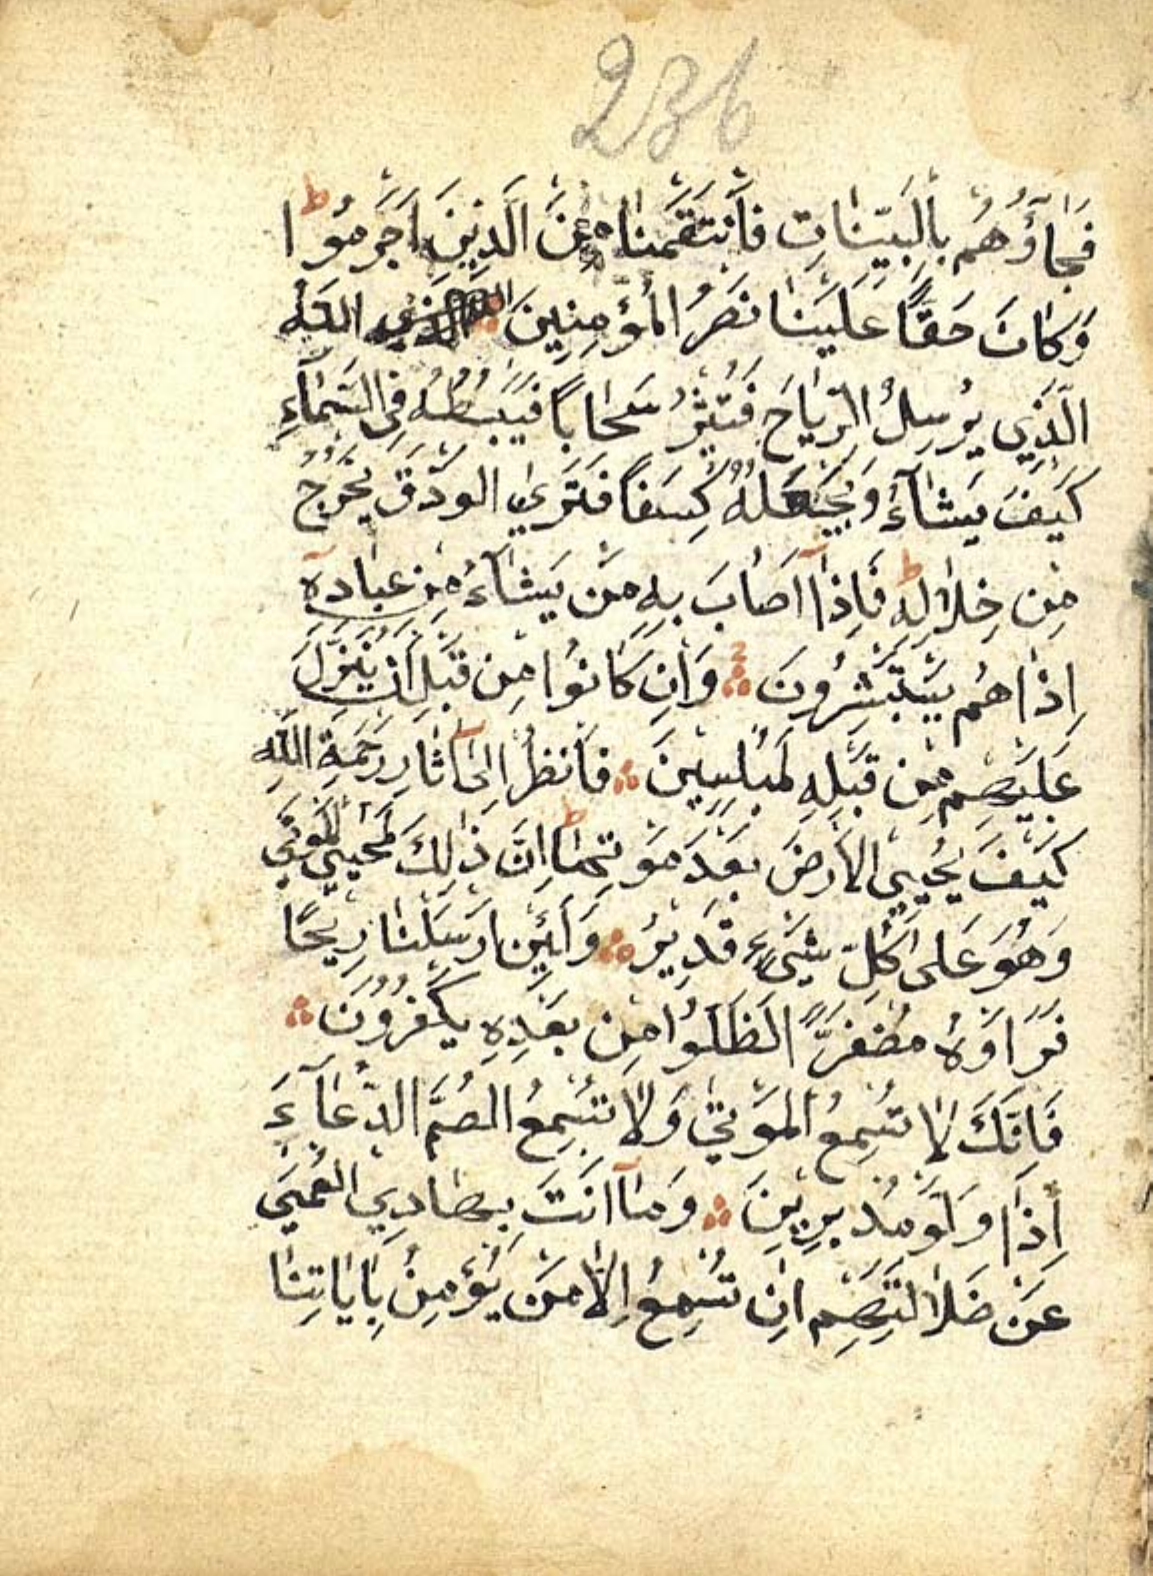 236
فَجَاؤُهُم بِالْبَيِّنَاتِ فَانْتَقَمْنَا مِنَ الَّذِينَ اَجْرَمُوا ط
وَكَانَ حَقًّا عَلَيْنَا نَصْرُ الْمُؤْمِنِينَ اللَّهُ
الَّذِي يُرْسِلُ الرِّيَاحَ فَتُثِيرُ سَحَابًا فَيَبْسُطُهُ فِي السَّمَاءِ
كَيْفَ يَشَاءُ وَيَجْعَلُهُ كِسَفًا فَتَرَى الْوَدْقَ يَخْرُجُ
مِنْ خِلَالِهِ ط فَاِذَا اَصَابَ بِهِ مَنْ يَشَاءُ مِنْ عِبَادِهِ
اِذَا هُمْ يَسْتَبْشِرُونَ وَاِنْ كَانُوا مِنْ قَبْلِ اَنْ يُنَزَّلَ
عَلَيْهِمْ مِنْ قَبْلِهِ لَمُبْلِسِينَ فَانْظُرْ اِلَى آثَارِ رَحْمَةِ اللَّهِ
كَيْفَ يُحْيِي الْاَرْضَ بَعْدَ مَوْتِهَا ط اِنَّ ذٰلِكَ لَمُحْيِي الْمَوْتَى
وَهُوَ عَلَى كُلِّ شَيْءٍ قَدِيرٌ وَلَئِنْ اَرْسَلْنَا رِيحًا
فَرَاَوْهُ مُصْفَرًّا لَظَلُّوا مِنْ بَعْدِهِ يَكْفُرُونَ
فَاِنَّكَ لَا تُسْمِعُ الْمَوْتَى وَلَا تُسْمِعُ الصُّمَّ الدُّعَاءَ
اِذَا وَلَّوْ مُدْبِرِينَ وَمَا اَنْتَ بِهَادِي الْعُمْيَ
عَنْ ضَلَالَتِهِمْ اِنْ تُسْمِعُ اِلَّا مَنْ يُؤْمِنُ بِاٰيَاتِنَا